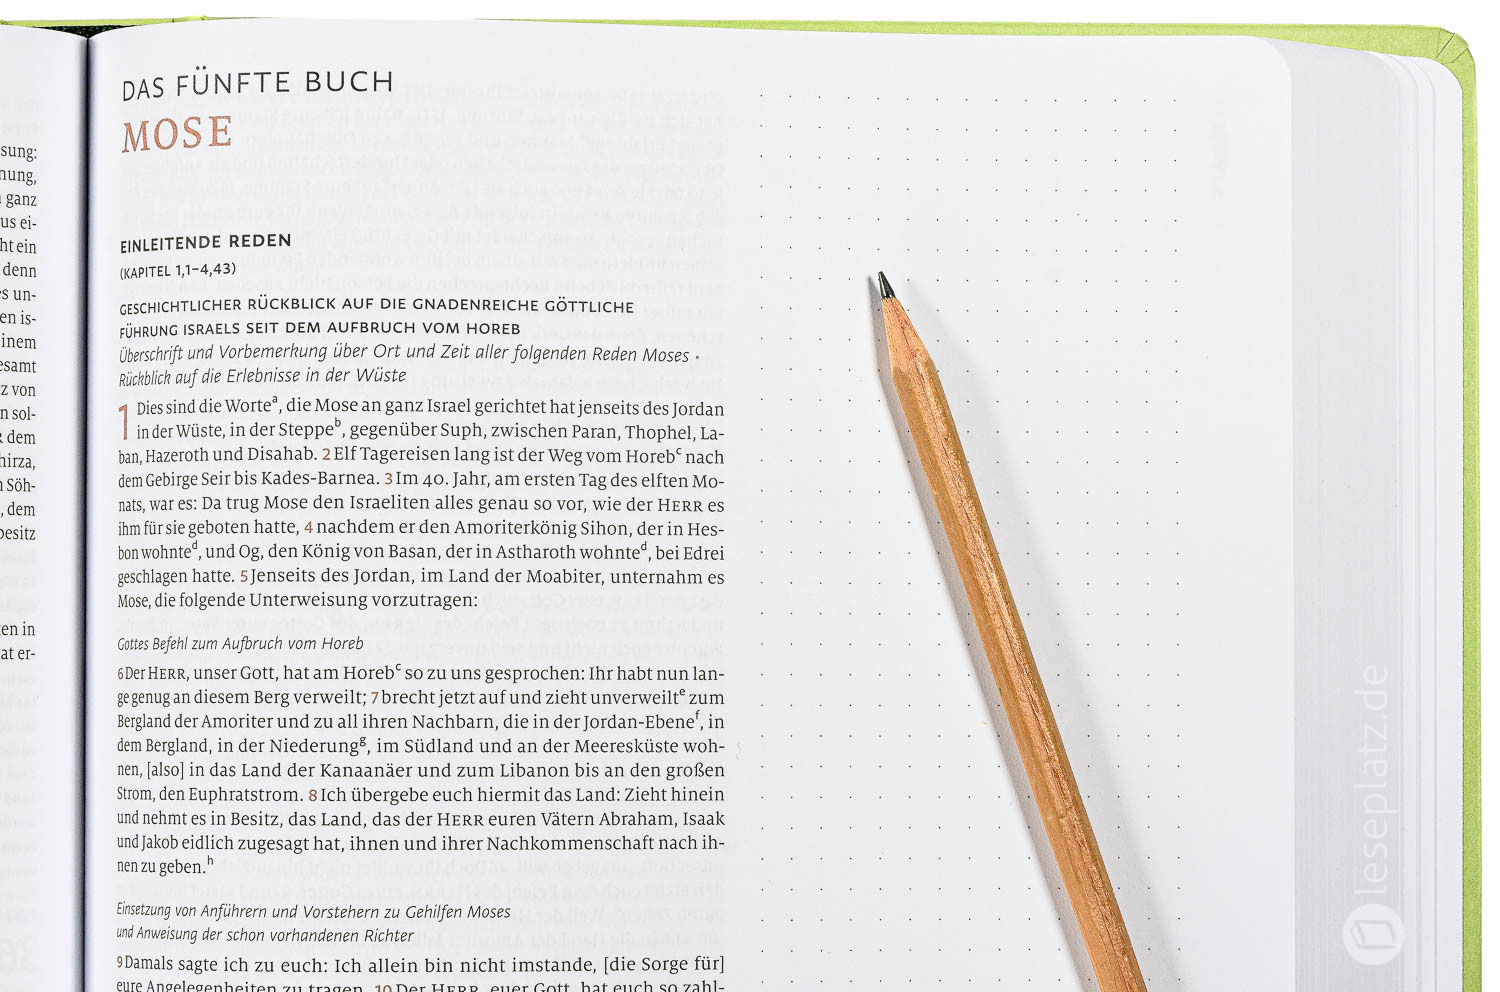 sung:
nung,
ganz
us ei-
ht ein
denn
s un-
en is-
inem
esamt
z von
n sol-
dem
hirza,
Söh-
, dem
besitz
en in
at er-
DAS FÜNFTE BUCH
MOSE
EINLEITENDE REDEN
(KAPITEL 1,1–4,43)
GESCHICHTLICHER RÜCKBLICK AUF DIE GNADENREICHE GÖTTLICHE
FÜHRUNG ISRAELS SEIT DEM AUFBRUCH VOM HOREB
Überschrift und Vorbemerkung über Ort und Zeit aller folgenden Reden Moses •
Rückblick auf die Erlebnisse in der Wüste
1 Dies sind die Worteᵃ, die Mose an ganz Israel gerichtet hat jenseits des Jordan
in der Wüste, in der Steppeᵇ, gegenüber Suph, zwischen Paran, Thophel, La-
ban, Hazeroth und Disahab. 2 Elf Tagereisen lang ist der Weg vom Horebᶜ nach
dem Gebirge Seir bis Kades-Barnea. 3 Im 40. Jahr, am ersten Tag des elften Mo-
nats, war es: Da trug Mose den Israeliten alles genau so vor, wie der HERR es
ihm für sie geboten hatte, 4 nachdem er den Amoriterkönig Sihon, der in Hes-
bon wohnteᵈ, und Og, den König von Basan, der in Astharoth wohnteᵈ, bei Edrei
geschlagen hatte. 5 Jenseits des Jordan, im Land der Moabiter, unternahm es
Mose, die folgende Unterweisung vorzutragen:
Gottes Befehl zum Aufbruch vom Horeb
6 Der HERR, unser Gott, hat am Horebᶜ so zu uns gesprochen: Ihr habt nun lan-
ge genug an diesem Berg verweilt; 7 brecht jetzt auf und zieht unverweiltᵉ zum
Bergland der Amoriter und zu all ihren Nachbarn, die in der Jordan-Ebeneᶠ, in
dem Bergland, in der Niederungᵍ, im Südland und an der Meeresküste woh-
nen, [also] in das Land der Kanaanäer und zum Libanon bis an den großen
Strom, den Euphratstrom. 8 Ich übergebe euch hiermit das Land: Zieht hinein
und nehmt es in Besitz, das Land, das der HERR euren Vätern Abraham, Isaak
und Jakob eidlich zugesagt hat, ihnen und ihrer Nachkommenschaft nach ih-
nen zu geben.ʰ
Einsetzung von Anführern und Vorstehern zu Gehilfen Moses
und Anweisung der schon vorhandenen Richter
9 Damals sagte ich zu euch: Ich allein bin nicht imstande, [die Sorge für]
eure Angelegenheiten zu tragen. 10 Der HERR, euer Gott, hat euch so zahl-
leseplatz.de